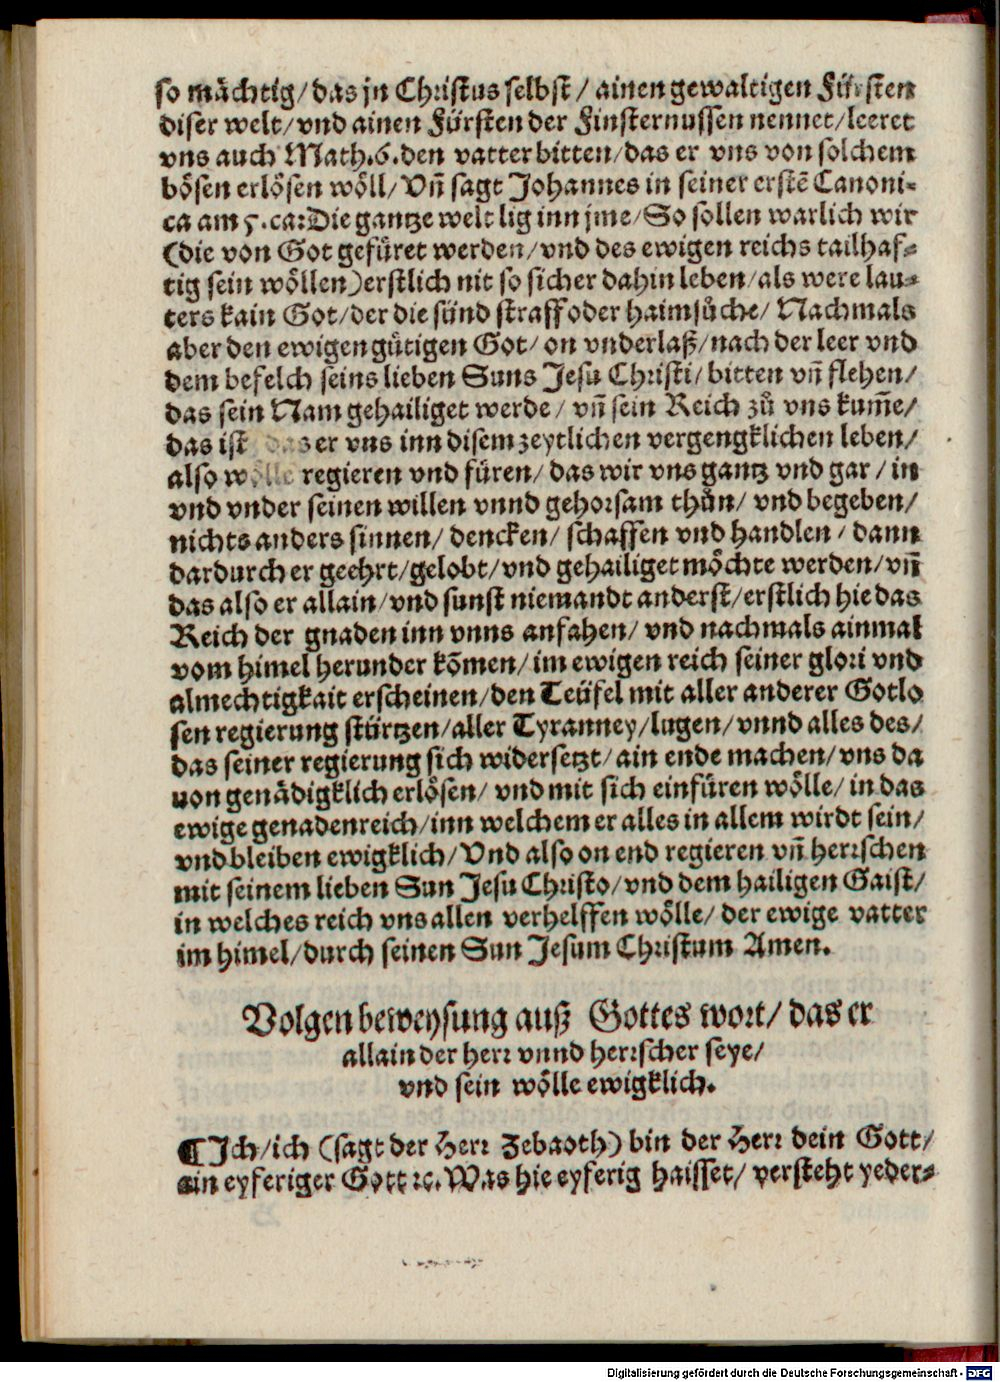 so mächtig/das jn Christus selbst/ ainen gewaltigen Fürsten
diser welt/vnd ainen Fürsten der Finsternussen nennet/leeret
vns auch Math.6.den vatter bitten/das er vns von solchem
bösen erlösen wöll/Vn̄ sagt Johannes in seiner erstē Canoni-
ca am 5.ca:Die gantze welt lig inn jme/So sollen warlich wir
(die von Got gefüret werden/vnd des ewigen reichs tailhaf-
tig sein wöllen)erstlich nit so sicher dahin leben/als were lau-
ters kain Got/der die sünd straff oder haimsůche/Nachmals
aber den ewigen gütigen Got/on vnderlaß/nach der leer vnd
dem befelch seins lieben Suns Jesu Christi/bitten vn̄ flehen/
das sein Nam gehailiget werde/ vn̄ sein Reich zů vns kum̄e/
das ist das er vns inn disem zeytlichen vergengklichen leben/
also wölle regieren vnd füren/das wir vns gantz vnd gar/in
vnd vnder seinen willen vnnd gehorsam thůn/ vnd begeben/
nichts anders sinnen/ dencken/ schaffen vnd handlen/ dann
dardurch er geehrt/gelobt/vnd gehailiget möchte werden/vn̄
das also er allain/vnd sunst niemandt anderst/erstlich hie das
Reich der gnaden inn vnns anfahen/ vnd nachmals ainmal
vom himel herunder kōmen/im ewigen reich seiner glori vnd
almechtigkait erscheinen/den Teüfel mit aller anderer Gotlo
sen regierung stürtzen/aller Tyranney/lugen/vnnd alles des/
das seiner regierung sich widersetzt/ain ende machen/vns da
uon genädigklich erlösen/ vnd mit sich einfüren wölle/in das
ewige genadenreich/inn welchem er alles in allem wirdt sein/
vnd bleiben ewigklich/Vnd also on end regieren vn̄ herrschen
mit seinem lieben Sun Jesu Christo/vnd dem hailigen Gaist/
in welches reich vns allen verhelffen wölle/ der ewige vatter
im himel/durch seinen Sun Jesum Christum Amen.
Volgen beweysung auß Gottes wort/ das er
allain der herr vnnd herrscher seye/
vnd sein wölle ewigklich.
¶Ich/ich (sagt der Herr Zebaoth) bin der Herr dein Gott/
ain eyferiger Gott ꝛc. Was hie eyferig haisset/ versteht yeder-
Digitalisierung gefördert durch die Deutsche Forschungsgemeinschaft - DFG